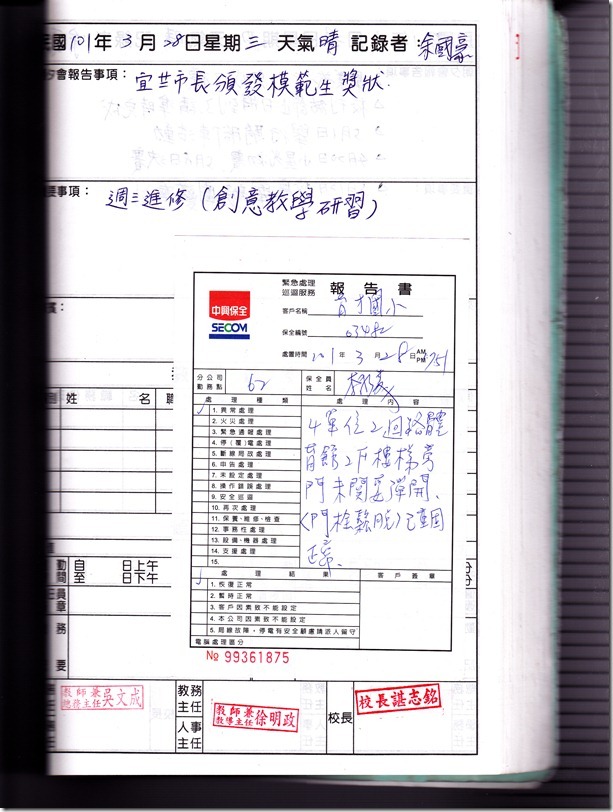 民國101年3月28日星期三 天氣晴 記錄者:余國豪
夕會報告事項:宜世市長頒發模範生獎狀.
要事項: 週三進修(創意教學研習)
緊急處理
巡迴服務 報告書
中興保全
SECOM
客戶名稱 育才國小
保全編號
處置時間 101年3月28日 AM PM
分公司
勤務點 62
保全員
姓名
處理種類 處理內容
1. 異常處理
2. 火災處理
3. 緊急通報處理
4. 停(覆)電處理
5. 斷線局故處理
6. 申告處理
7. 未設定處理
8. 操作錯誤處理
9. 安全巡迴
10. 再次處理
11. 保養、維修、檢查
12. 事務性處理
13. 設備、機器處理
14. 支援處理
15.
4單位2迴路體
育館2F樓梯旁
門未關妥彈開、
(門栓鬆脫)已重固
正常、
處理結果 客戶簽章
1. 恢復正常
2. 暫時正常
3. 客戶因素致不能設定
4. 本公司因素致不能設定
5. 局線故障,停電有安全顧慮請派人留守
電腦處理區分
№ 99361875
姓 名 職
自 日上午
至 日下午
動
間
任員
章
務
要
教師兼
總務主任 吳文成
教務
主任
教師兼
教導主任 徐明政
人事
主任
校長
校長諶志銘